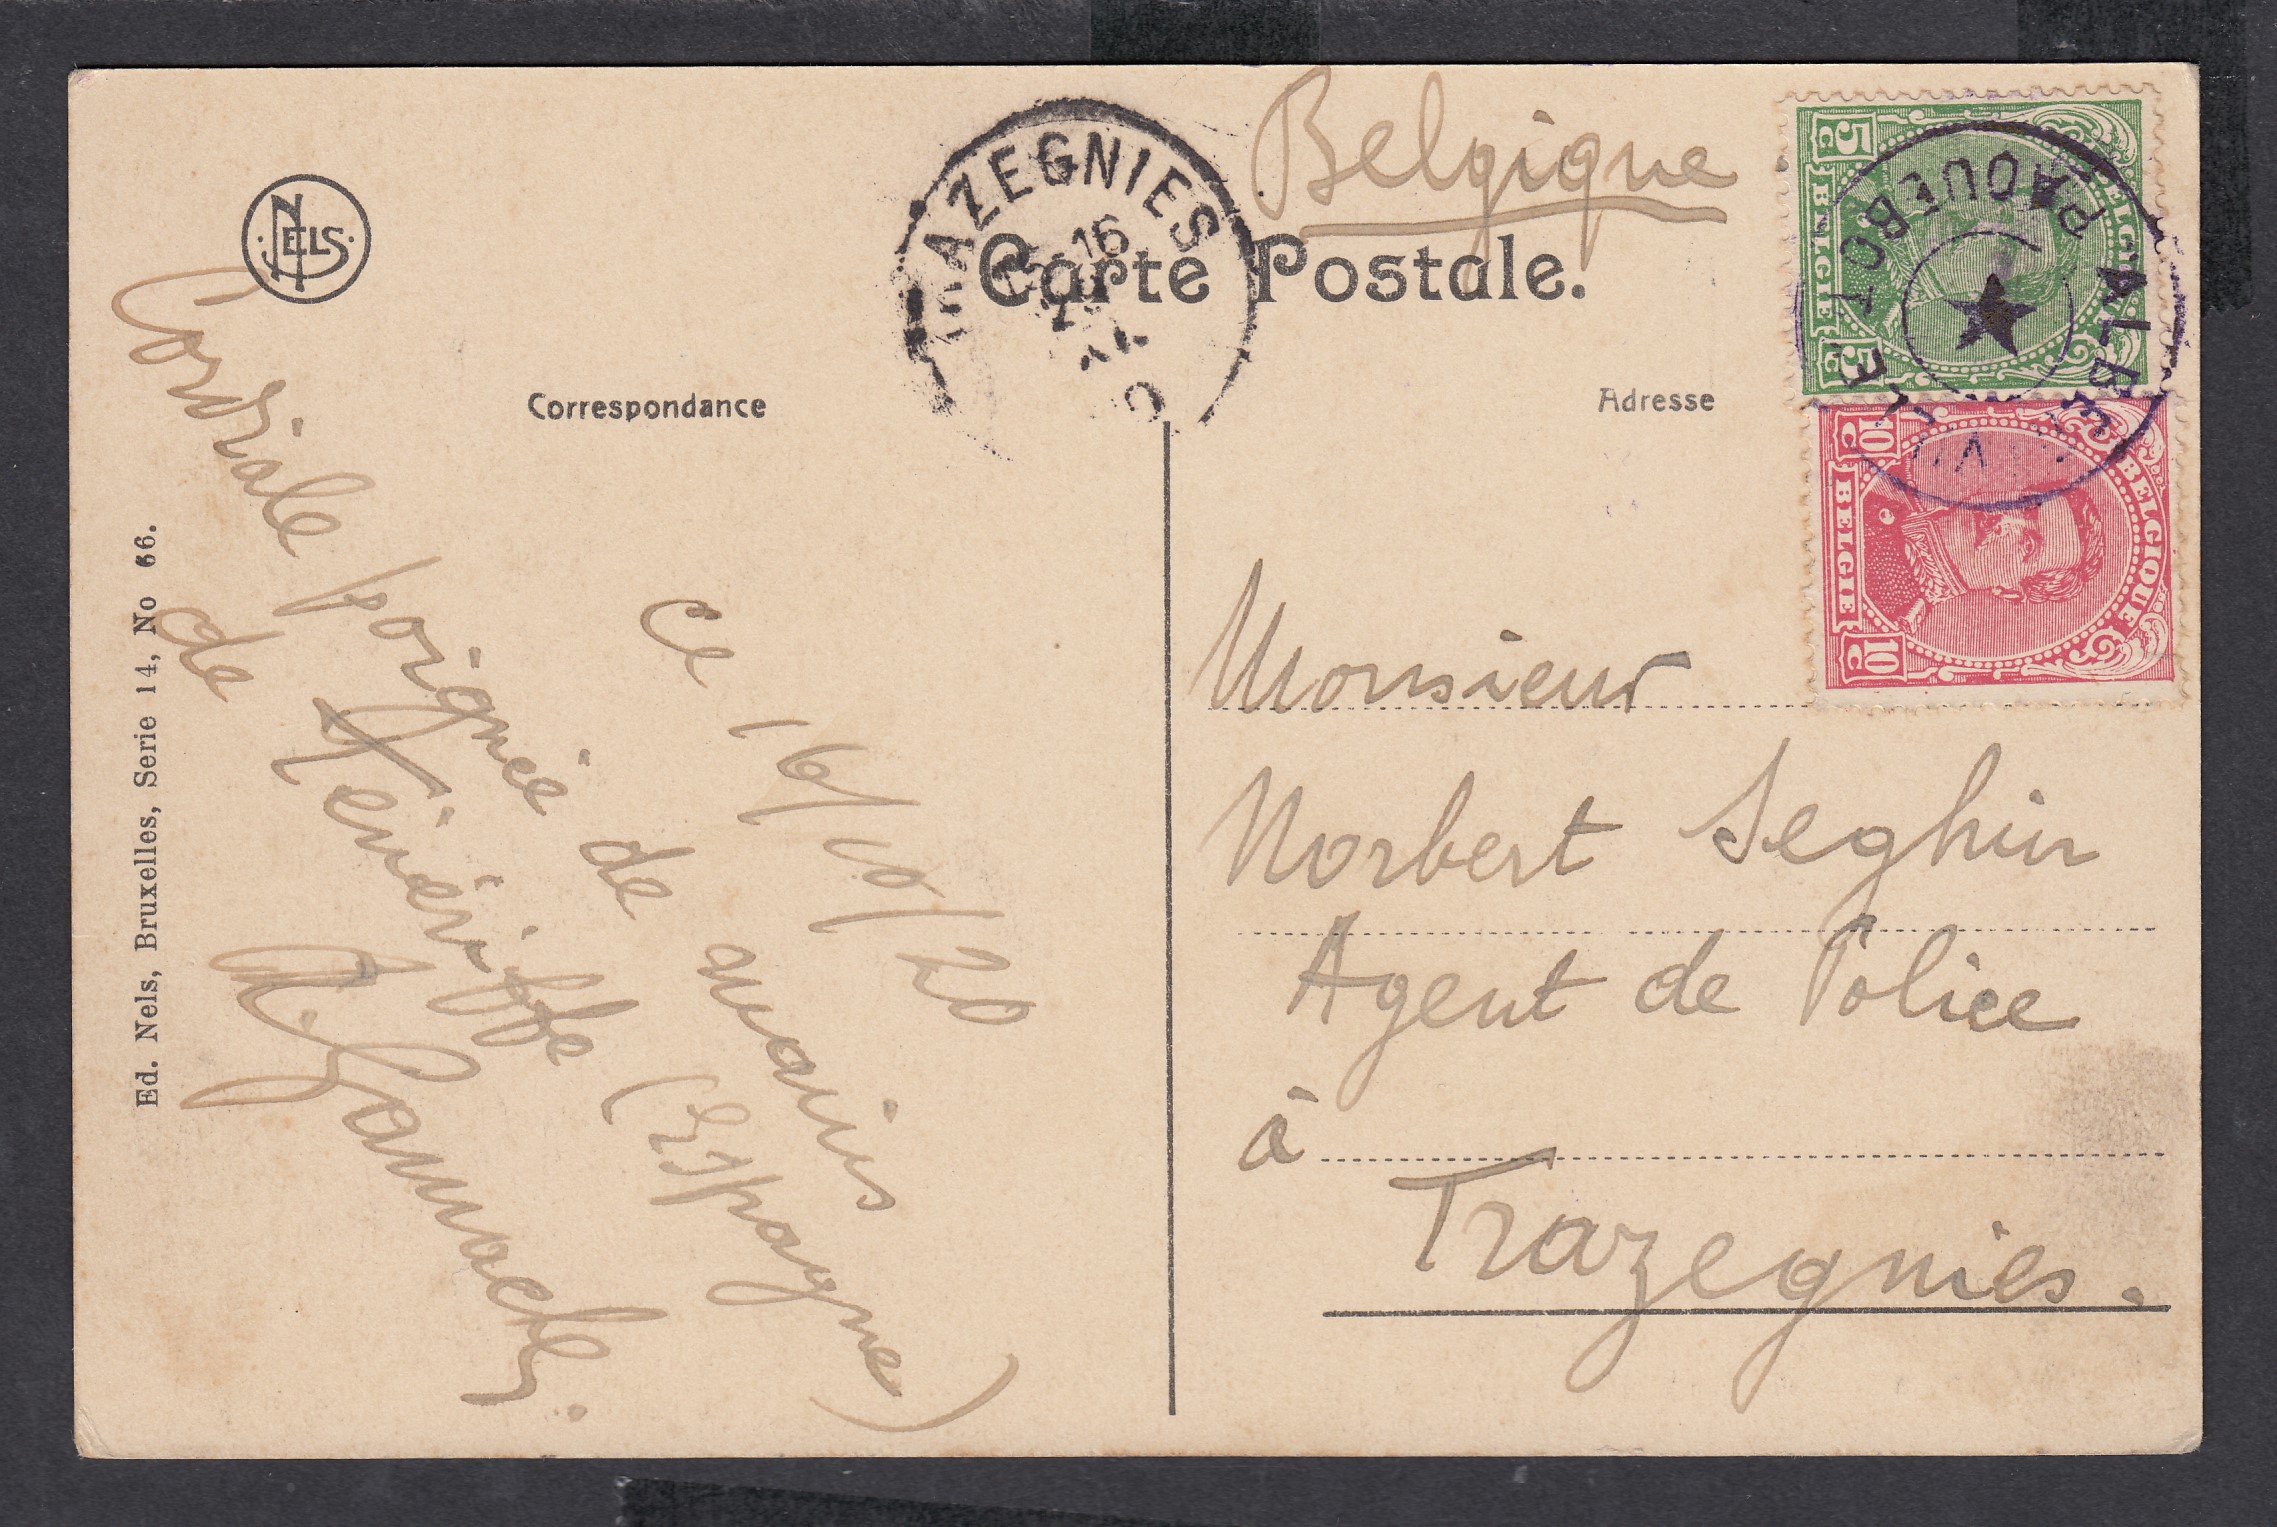 Belgique
Carte Postale.
NELS
TRAZEGNIES
16
Correspondance
Adresse
5c 5c
BELGIQUE
BELGIË
10c 10c
BELGIQUE
BELGIË
PAQUEBOT
ALBERTVILLE
Cordiale poignée de mains
de Ténériffe (Espagne)
ce 16/10/20
Monsieur
Norbert Seghin
Agent de Police
à
Trazegnies.
Ed. Nels, Bruxelles, Serie 14, No 66.